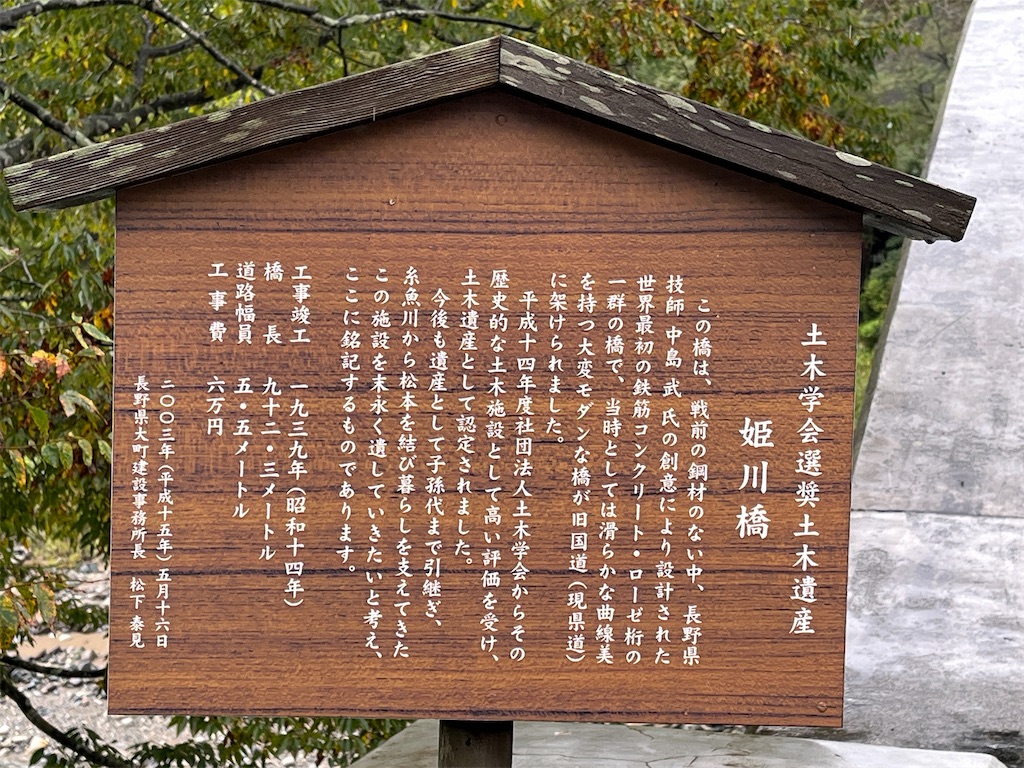 土木学会選奨土木遺産
姫川橋
この橋は、戦前の鋼材のない中、長野県
技師 中島 武 氏の創意により設計された
世界最初の鉄筋コンクリート・ローゼ桁の
一群の橋で、当時としては滑らかな曲線美
を持つ大変モダンな橋が旧国道（現県道）
に架けられました。
平成十四年度社団法人土木学会からその
歴史的な土木施設として高い評価を受け、
土木遺産として認定されました。
今後も遺産として子孫代まで引継ぎ、
糸魚川から松本を結び暮らしを支えてきた
この施設を末永く遺していきたいと考え、
ここに銘記するものであります。
工事竣工 一九三九年（昭和十四年）
橋長 九十二・三メートル
道路幅員 五・五メートル
工事費 六万円
二〇〇三年（平成十五年）五月十六日
長野県大町建設事務所長 松下 泰見